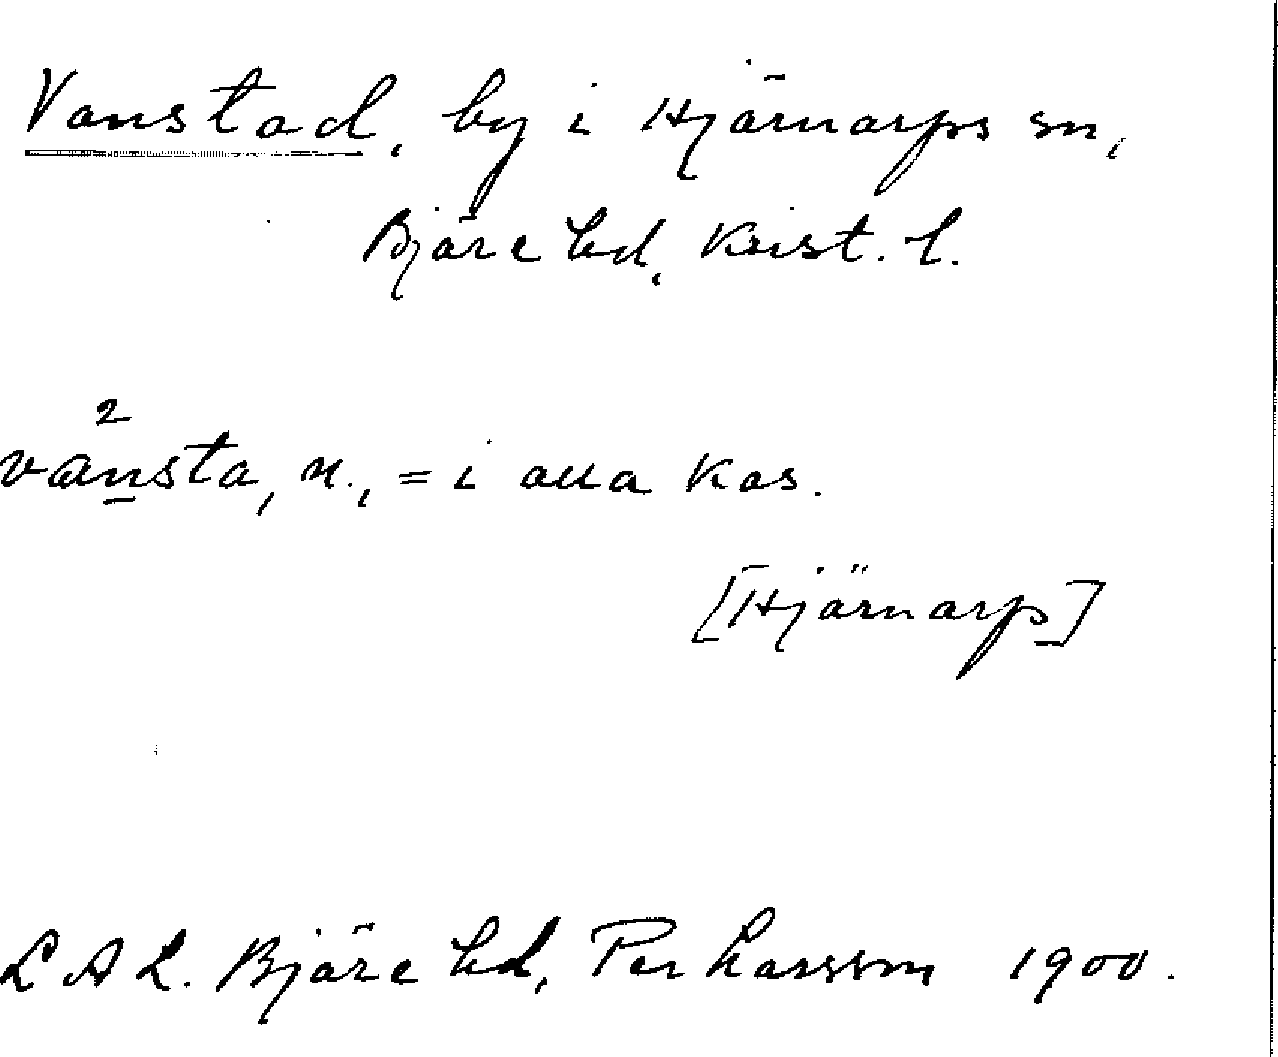 Vanstad, by i Hjärnarps sn,
Bjäre hd, Krist. l.
2
vänsta, n., = i alla kas.
[Hjärnarp]
L A L. Bjäre hd, Per Larsson 1900.